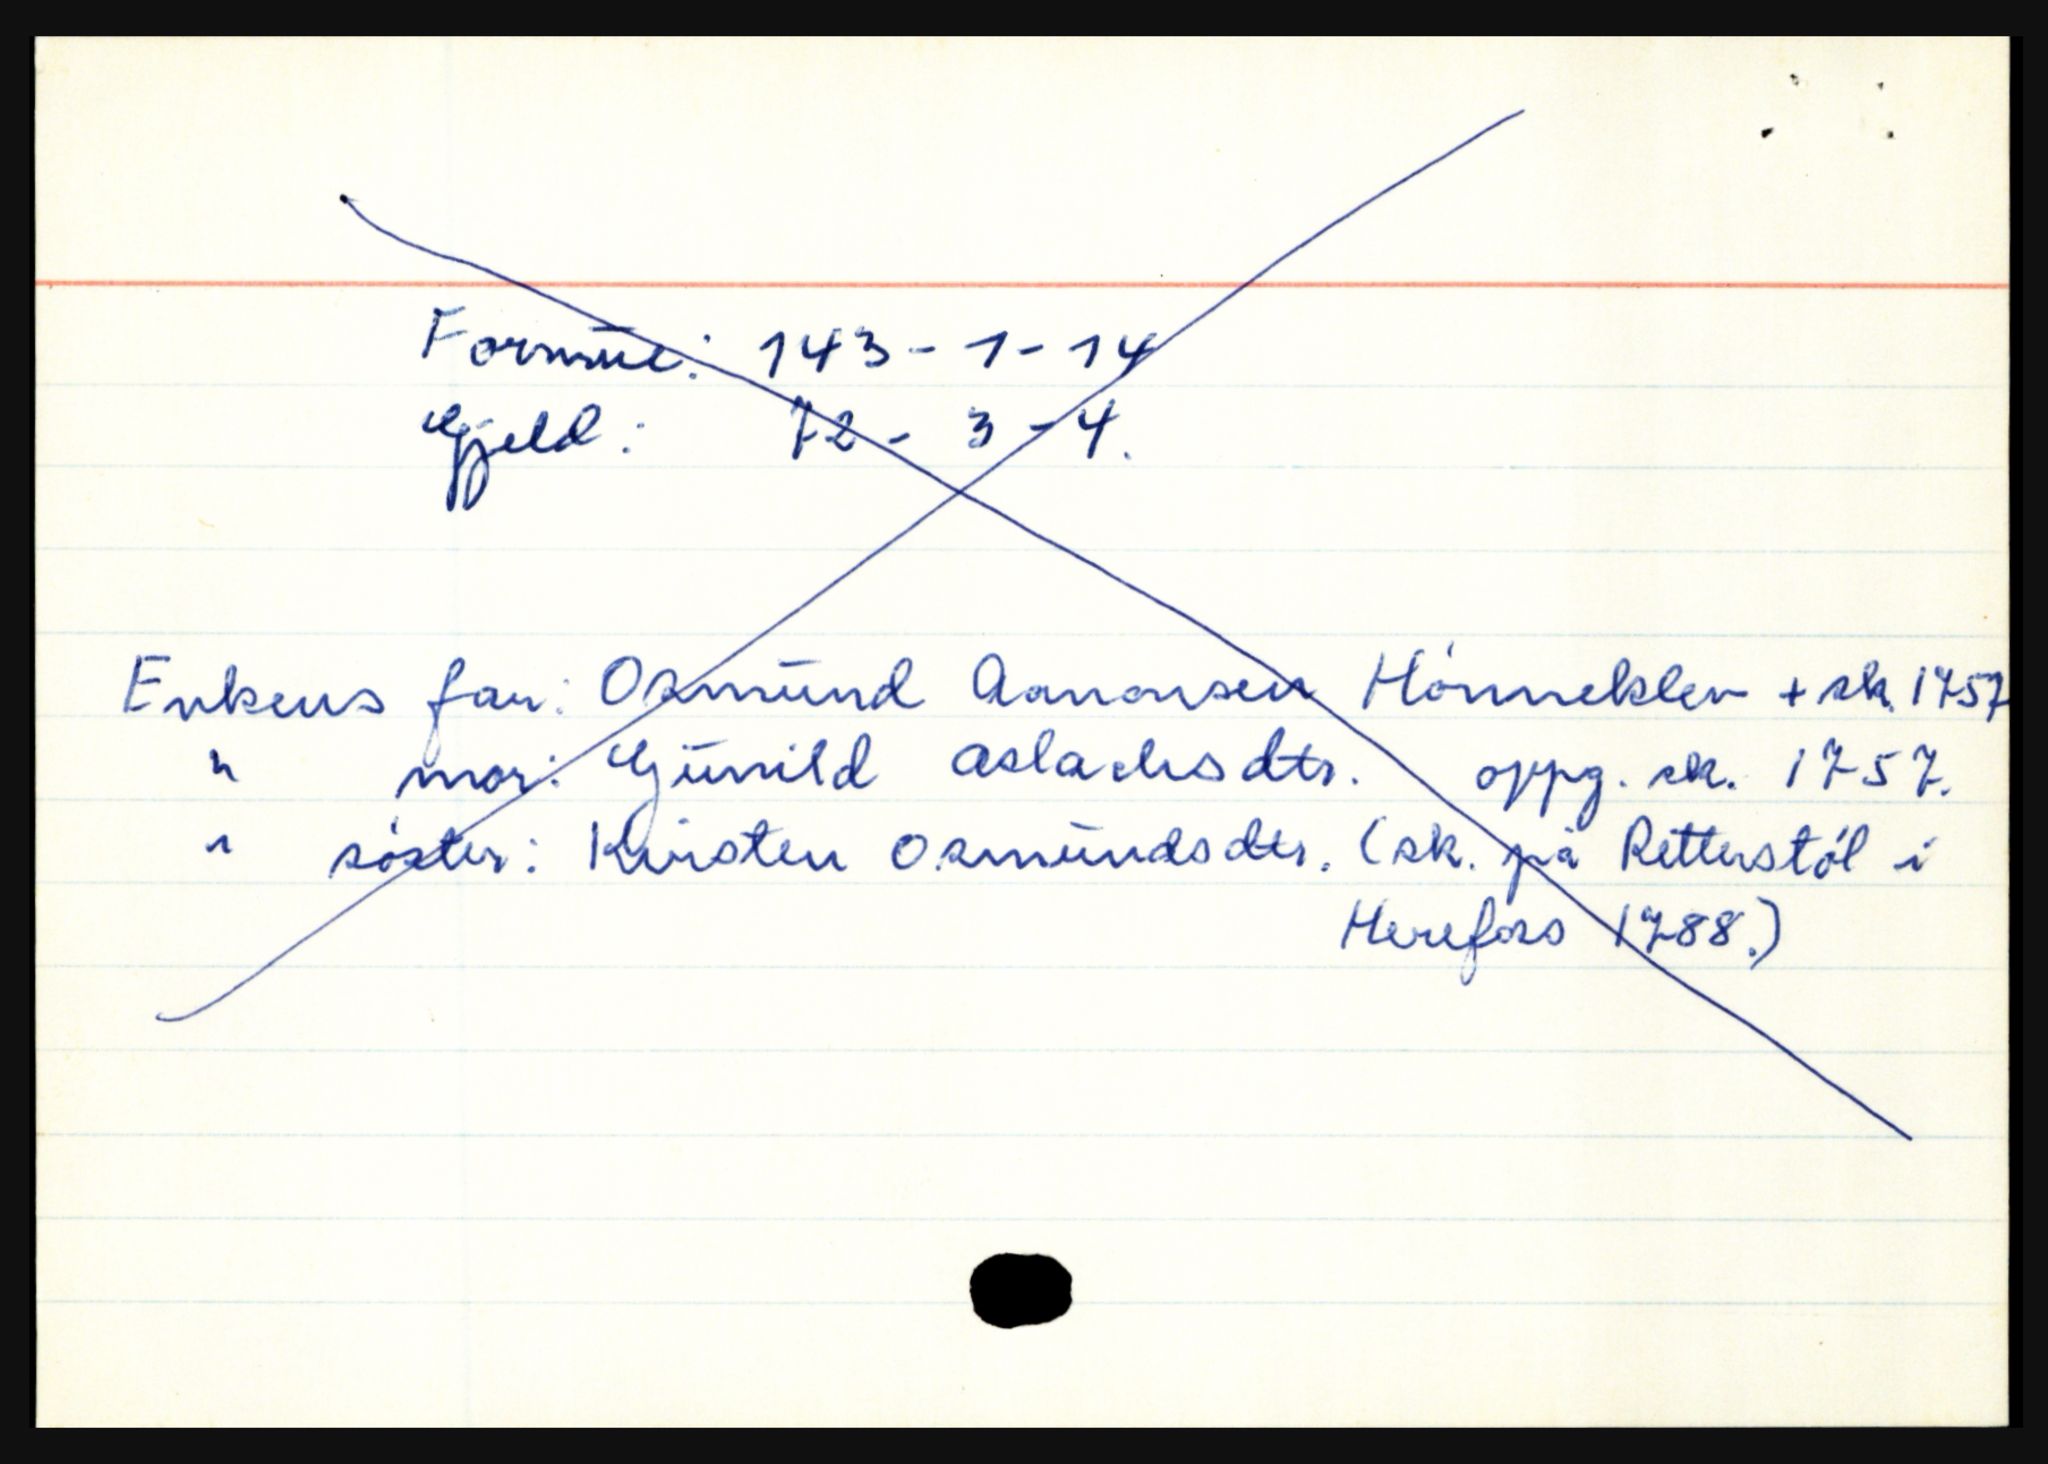 Formue: 143 - 1 - 14
Gjeld: 72 - 3 - 4.
Enkens far: Osmund Aanonsen Hónneklev + sk. 1757
" mor: Gunild Aslachsdtr. oppg. sk. 1757.
" söster: Kirsten Osmundsdtr. (sk. på Retterstól i
Herefoss 1788.)